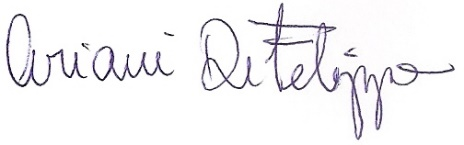 Ariani Di Felippo